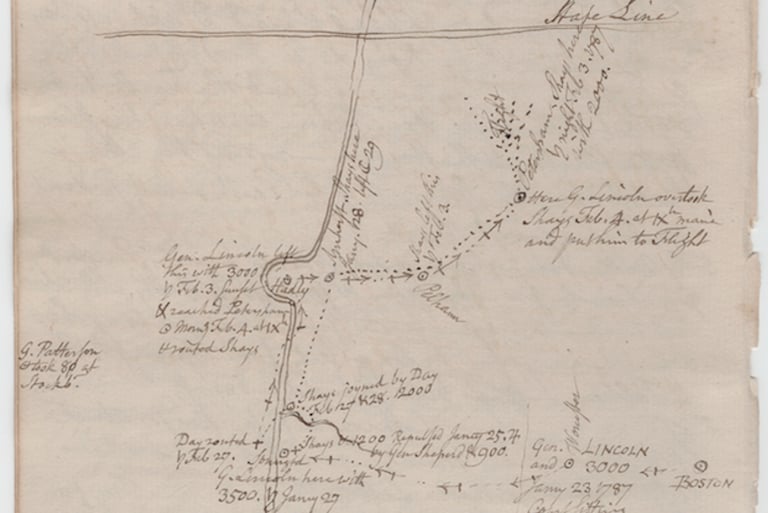 State Line
Petersham, Shays here
y night Feb 3. 1787
with 2000.
Flight
Amherst. Shays here
Jany. 28.
Shays left this
y Feb. 3.
Here G. Lincoln overtook
Shays Feb. 4. at IXh man̄e
and put him to Flight
Gen. Lincoln left
this with 3000
y Feb. 3. Sunset
Hadly
& reached Petersham
Morng Feb. 4. at IXh
& routed Shays
Pelham
G. Patterson
took 80 at
Stockb.
Shays joyned by Day
Feb 27 & 28. 12000
Day routed
y Feb 27.
Shays & 1200 Repulsed Jany 25. 4
by Gen Sheperd & 900.
G. Lincoln here with
3500. y Jany 27
Worcester
Gen. LINCOLN
and 3000
Jany 23 1787
BOSTON